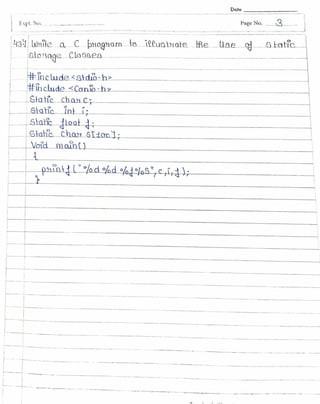 Date
Expt. No.
Page No. 3
43) Write a C program to illustrate the Use of Static
Storage Classes
#include <stdio.h>
#include <Conio.h>
Static char c;
Static int i;
Static float f;
Static char S[100];
Void main()
{
printf("%d %d %f %s", c, i, f);
}